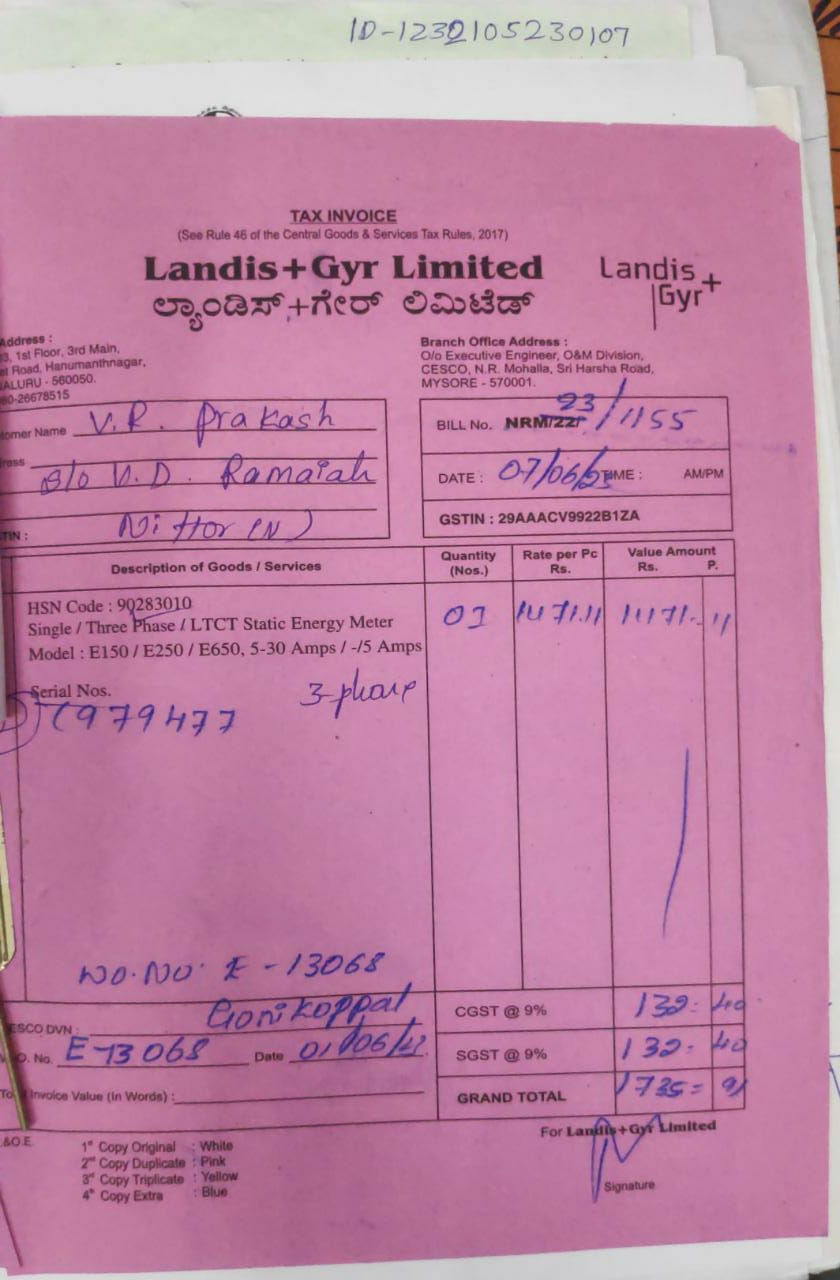 ID-1232105230107
TAX INVOICE
(See Rule 46 of the Central Goods & Services Tax Rules, 2017)
Landis+Gyr Limited
ಲ್ಯಾಂಡಿಸ್+ಗೇರ್ ಲಿಮಿಟೆಡ್
Landis+
Gyr
Address :
3, 1st Floor, 3rd Main,
Road, Hanumanthnagar,
ALURU - 560050.
80-26678515
Branch Office Address :
O/o Executive Engineer, O&M Division,
CESCO, N.R. Mohalla, Sri Harsha Road,
MYSORE - 570001.
omer Name V.R. Prakash
ress S/o V.D. Ramaiah
Nittor (N)
TIN :
BILL No. NRM/22/ 23/1155
DATE : 07/06/23 TIME : AM/PM
GSTIN : 29AAACV9922B1ZA
Description of Goods / Services
Quantity (Nos.)
Rate per Pc Rs.
Value Amount Rs. P.
HSN Code : 90283010
Single / Three Phase / LTCT Static Energy Meter
Model : E150 / E250 / E650, 5-30 Amps / -/5 Amps
01 1471.11 1471. 11
Serial Nos.
3-phase
7979477
WO.NO. E-13068
ESCO DVN : Gonikoppal
O. No. E-13068 Date 01/06/23
Invoice Value (In Words) :
CGST @ 9% 132. 40
SGST @ 9% 132. 40
GRAND TOTAL 1735= 91
&O.E.
1st Copy Original : White
2nd Copy Duplicate : Pink
3rd Copy Triplicate : Yellow
4th Copy Extra : Blue
For Landis+Gyr Limited
Signature